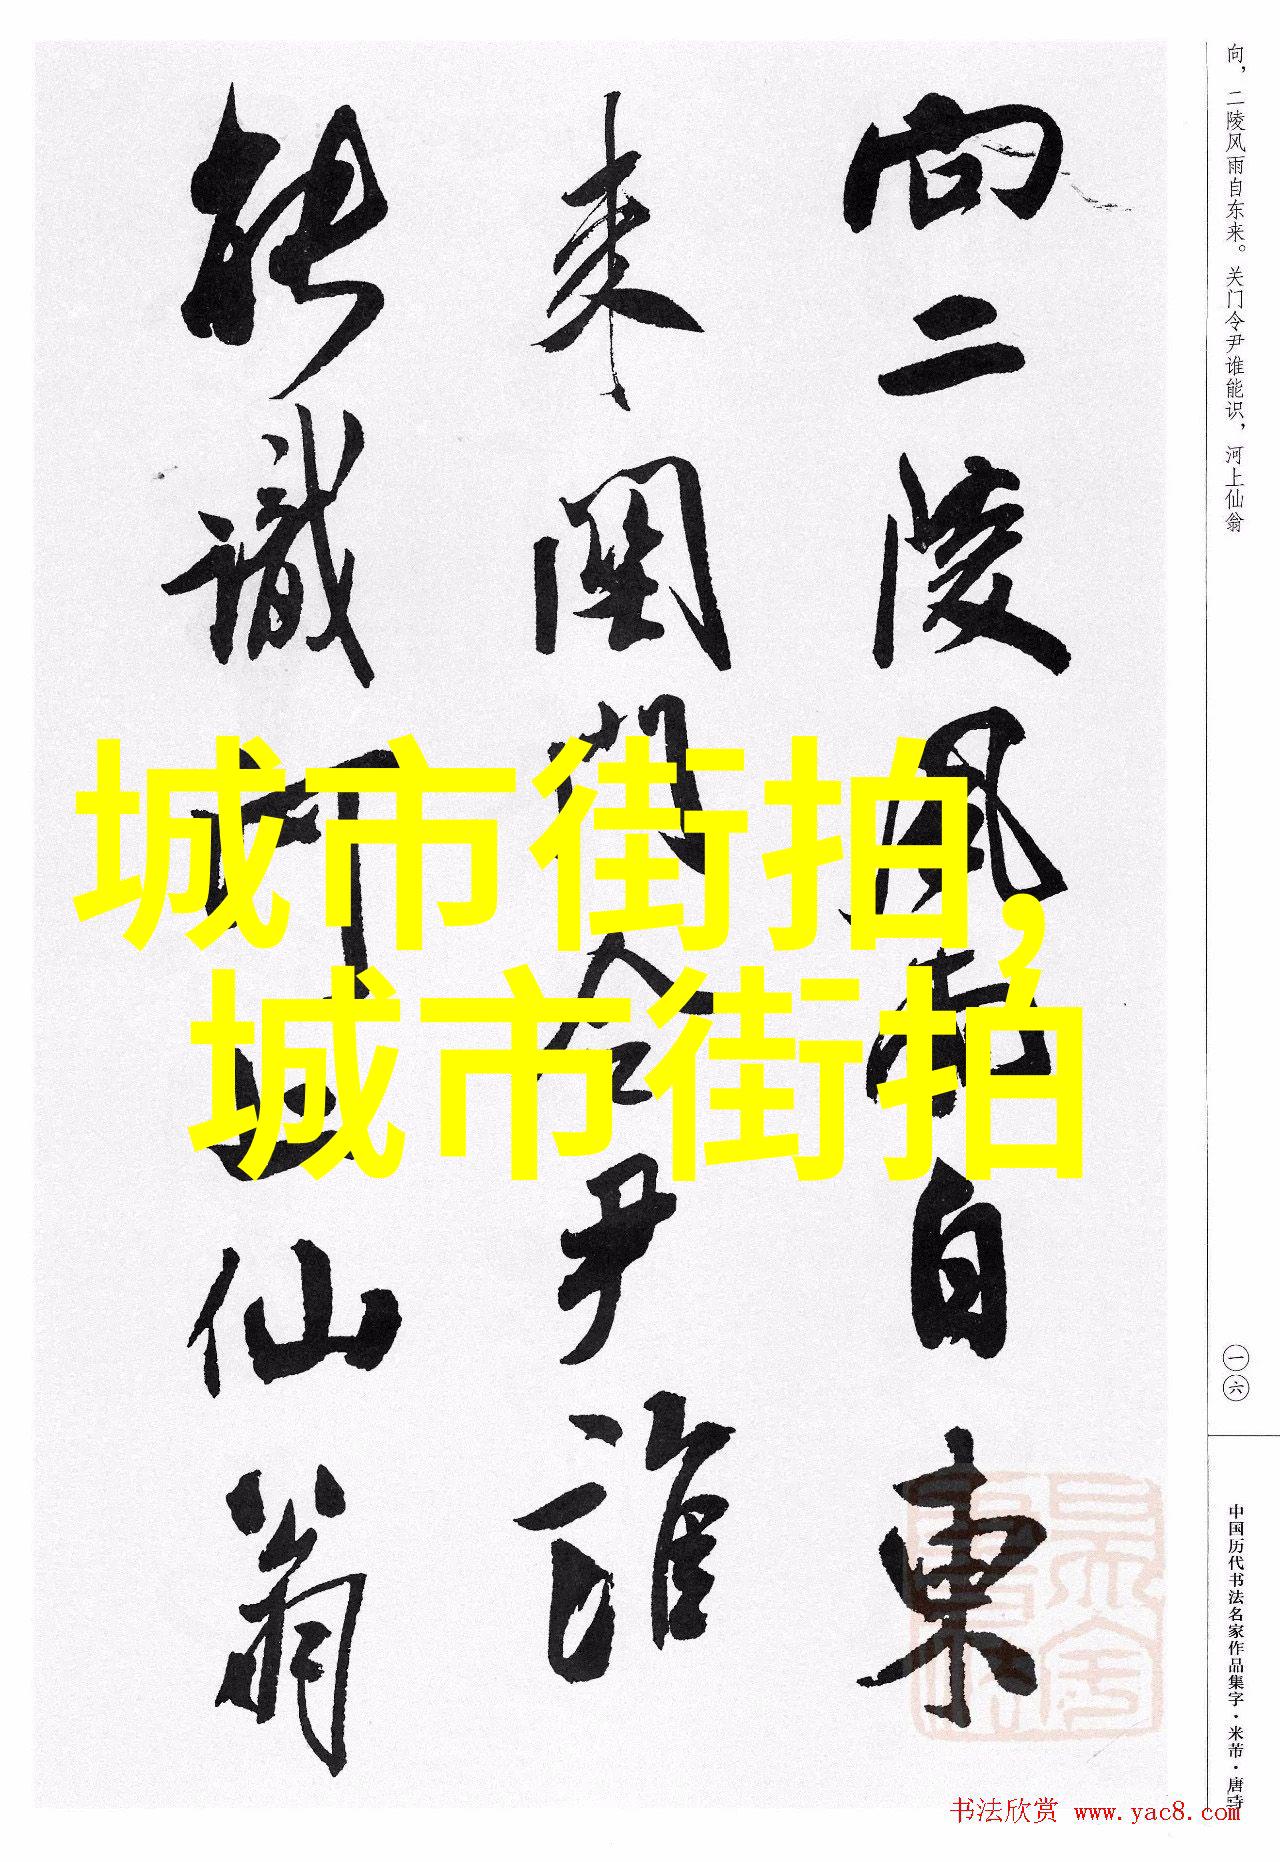 向二陵风雨自東
来関門令尹誰
能識河上仙翁
城市街拍,
城市街拍
向，二陵风雨自东来。关门令尹谁能识，河上仙翁
一六
中国历代书法名家作品集字·米芾·唐诗
书法欣赏 www.yac8.com